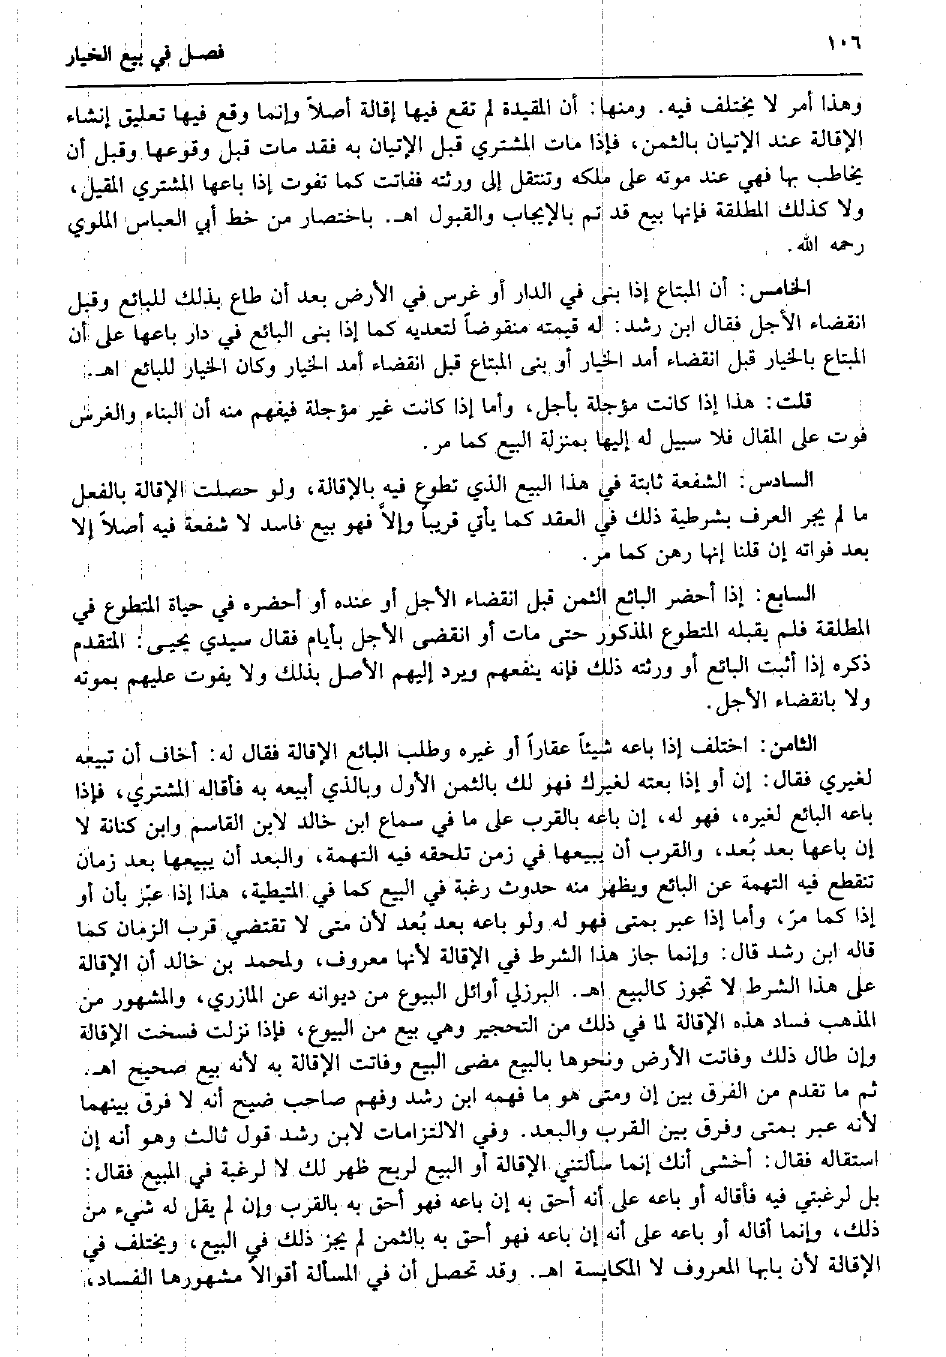 ١٠٦
فصل في بيع الخيار
وهذا أمر لا يختلف فيه. ومنها: أن المقيدة لم تقع فيها إقالة أصلاً وإنما وقع فيها تعليق إنشاء
الإقالة عند الإتيان بالثمن، فإذا مات المشتري قبل الإتيان به فقد مات قبل وقوعها وقبل أن
يخاطب بها فهي عند موته على ملكه وتنتقل إلى ورثته ففاتت كما تفوت إذا باعها المشتري المقيل،
ولا كذلك المطلقة فإنها بيع قد تم بالإيجاب والقبول اهـ. باختصار من خط أبي العباس الملوي
رحمه الله.
الخامس: أن المبتاع إذا بنى في الدار أو غرس في الأرض بعد أن طاع بذلك للبائع وقبل
انقضاء الأجل فقال ابن رشد: له قيمته منقوضاً لتعديه كما إذا بنى البائع في دار باعها على أن
المبتاع بالخيار قبل انقضاء أمد الخيار أو بنى المبتاع قبل انقضاء أمد الخيار وكان الخيار للبائع اهـ.
قلت: هذا إذا كانت مؤجلة بأجل، وأما إذا كانت غير مؤجلة فيفهم منه أن البناء والغرس
فوت على المقال فلا سبيل له إليها بمنزلة البيع كما مر.
السادس: الشفعة ثابتة في هذا البيع الذي تطوع فيه بالإقالة، ولو حصلت الإقالة بالفعل
ما لم يجر العرف بشرطية ذلك في العقد كما يأتي قريباً وإلاَّ فهو بيع فاسد لا شفعة فيه أصلاً إلا
بعد فواته إن قلنا إنها رهن كما مر.
السابع: إذا أحضر البائع الثمن قبل انقضاء الأجل أو عنده أو أحضره في حياة المتطوع في
المطلقة فلم يقبله المتطوع المذكور حتى مات أو انقضى الأجل بأيام فقال سيدي يحيى: المتقدم
ذكره إذا أثبت البائع أو ورثته ذلك فإنه ينفعهم ويرد إليهم الأصل بذلك ولا يفوت عليهم بموته
ولا بانقضاء الأجل.
الثامن: اختلف إذا باعه شيئاً عقاراً أو غيره وطلب البائع الإقالة فقال له: أخاف أن تبيعه
لغيري فقال: إن أو إذا بعته لغيرك فهو لك بالثمن الأول وبالذي أبيعه به فأقاله المشتري، فإذا
باعه البائع لغيره، فهو له، إن باعه بالقرب على ما في سماع ابن خالد لابن القاسم وابن كنانة لا
إن باعها بعد بُعد، والقرب أن يبيعها في زمن تلحقه فيه التهمة، والبعد أن يبيعها بعد زمان
تنقطع فيه التهمة عن البائع ويظهر منه حدوث رغبة في البيع كما في المتيطية، هذا إذا عبّر بأن أو
إذا كما مرّ، وأما إذا عبر بمتى فهو له ولو باعه بعد بُعد لأن متى لا تقتضي قرب الزمان كما
قاله ابن رشد قال: وإنما جاز هذا الشرط في الإقالة لأنها معروف، ولمحمد بن خالد أن الإقالة
على هذا الشرط لا تجوز كالبيع اهـ. البرزلي أوائل البيوع من ديوانه عن المازري، والمشهور من
المذهب فساد هذه الإقالة لما في ذلك من التحجير وهي بيع من البيوع، فإذا نزلت فسخت الإقالة
وإن طال ذلك وفاتت الأرض ونحوها بالبيع مضى البيع وفاتت الإقالة به لأنه بيع صحيح اهـ.
ثم ما تقدم من الفرق بين إن ومتى هو ما فهمه ابن رشد وفهم صاحب ضيح أنه لا فرق بينهما
لأنه عبر بمتى وفرق بين القرب والبعد. وفي الالتزامات لابن رشد قول ثالث وهو أنه إن
استقاله فقال: أخشى أنك إنما سألتني الإقالة أو البيع لربح ظهر لك لا لرغبة في المبيع فقال:
بل لرغبتي فيه فأقاله أو باعه على أنه أحق به إن باعه فهو أحق به بالقرب وإن لم يقل له شيء من
ذلك، وإنما أقاله أو باعه على أنه إن باعه فهو أحق به بالثمن لم يجز ذلك في البيع، ويختلف في
الإقالة لأن بابها المعروف لا المكايسة اهـ. وقد تحصل أن في المسألة أقوالاً مشهورها الفساد،